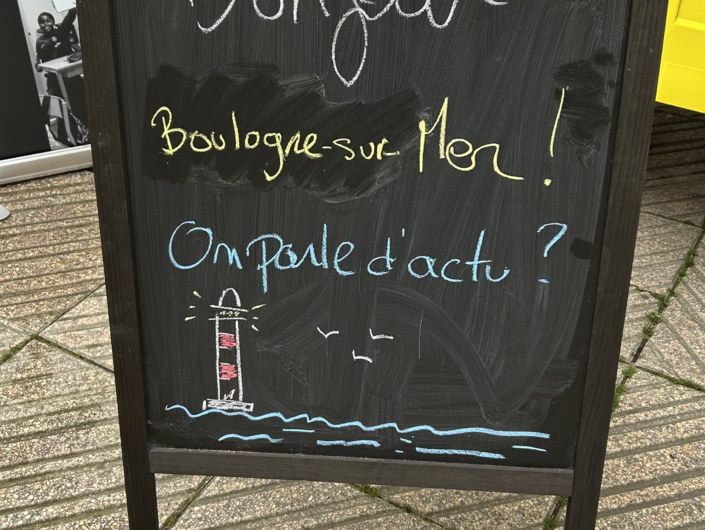 Bonjour
Boulogne-sur Mer !
On parle d'actu ?